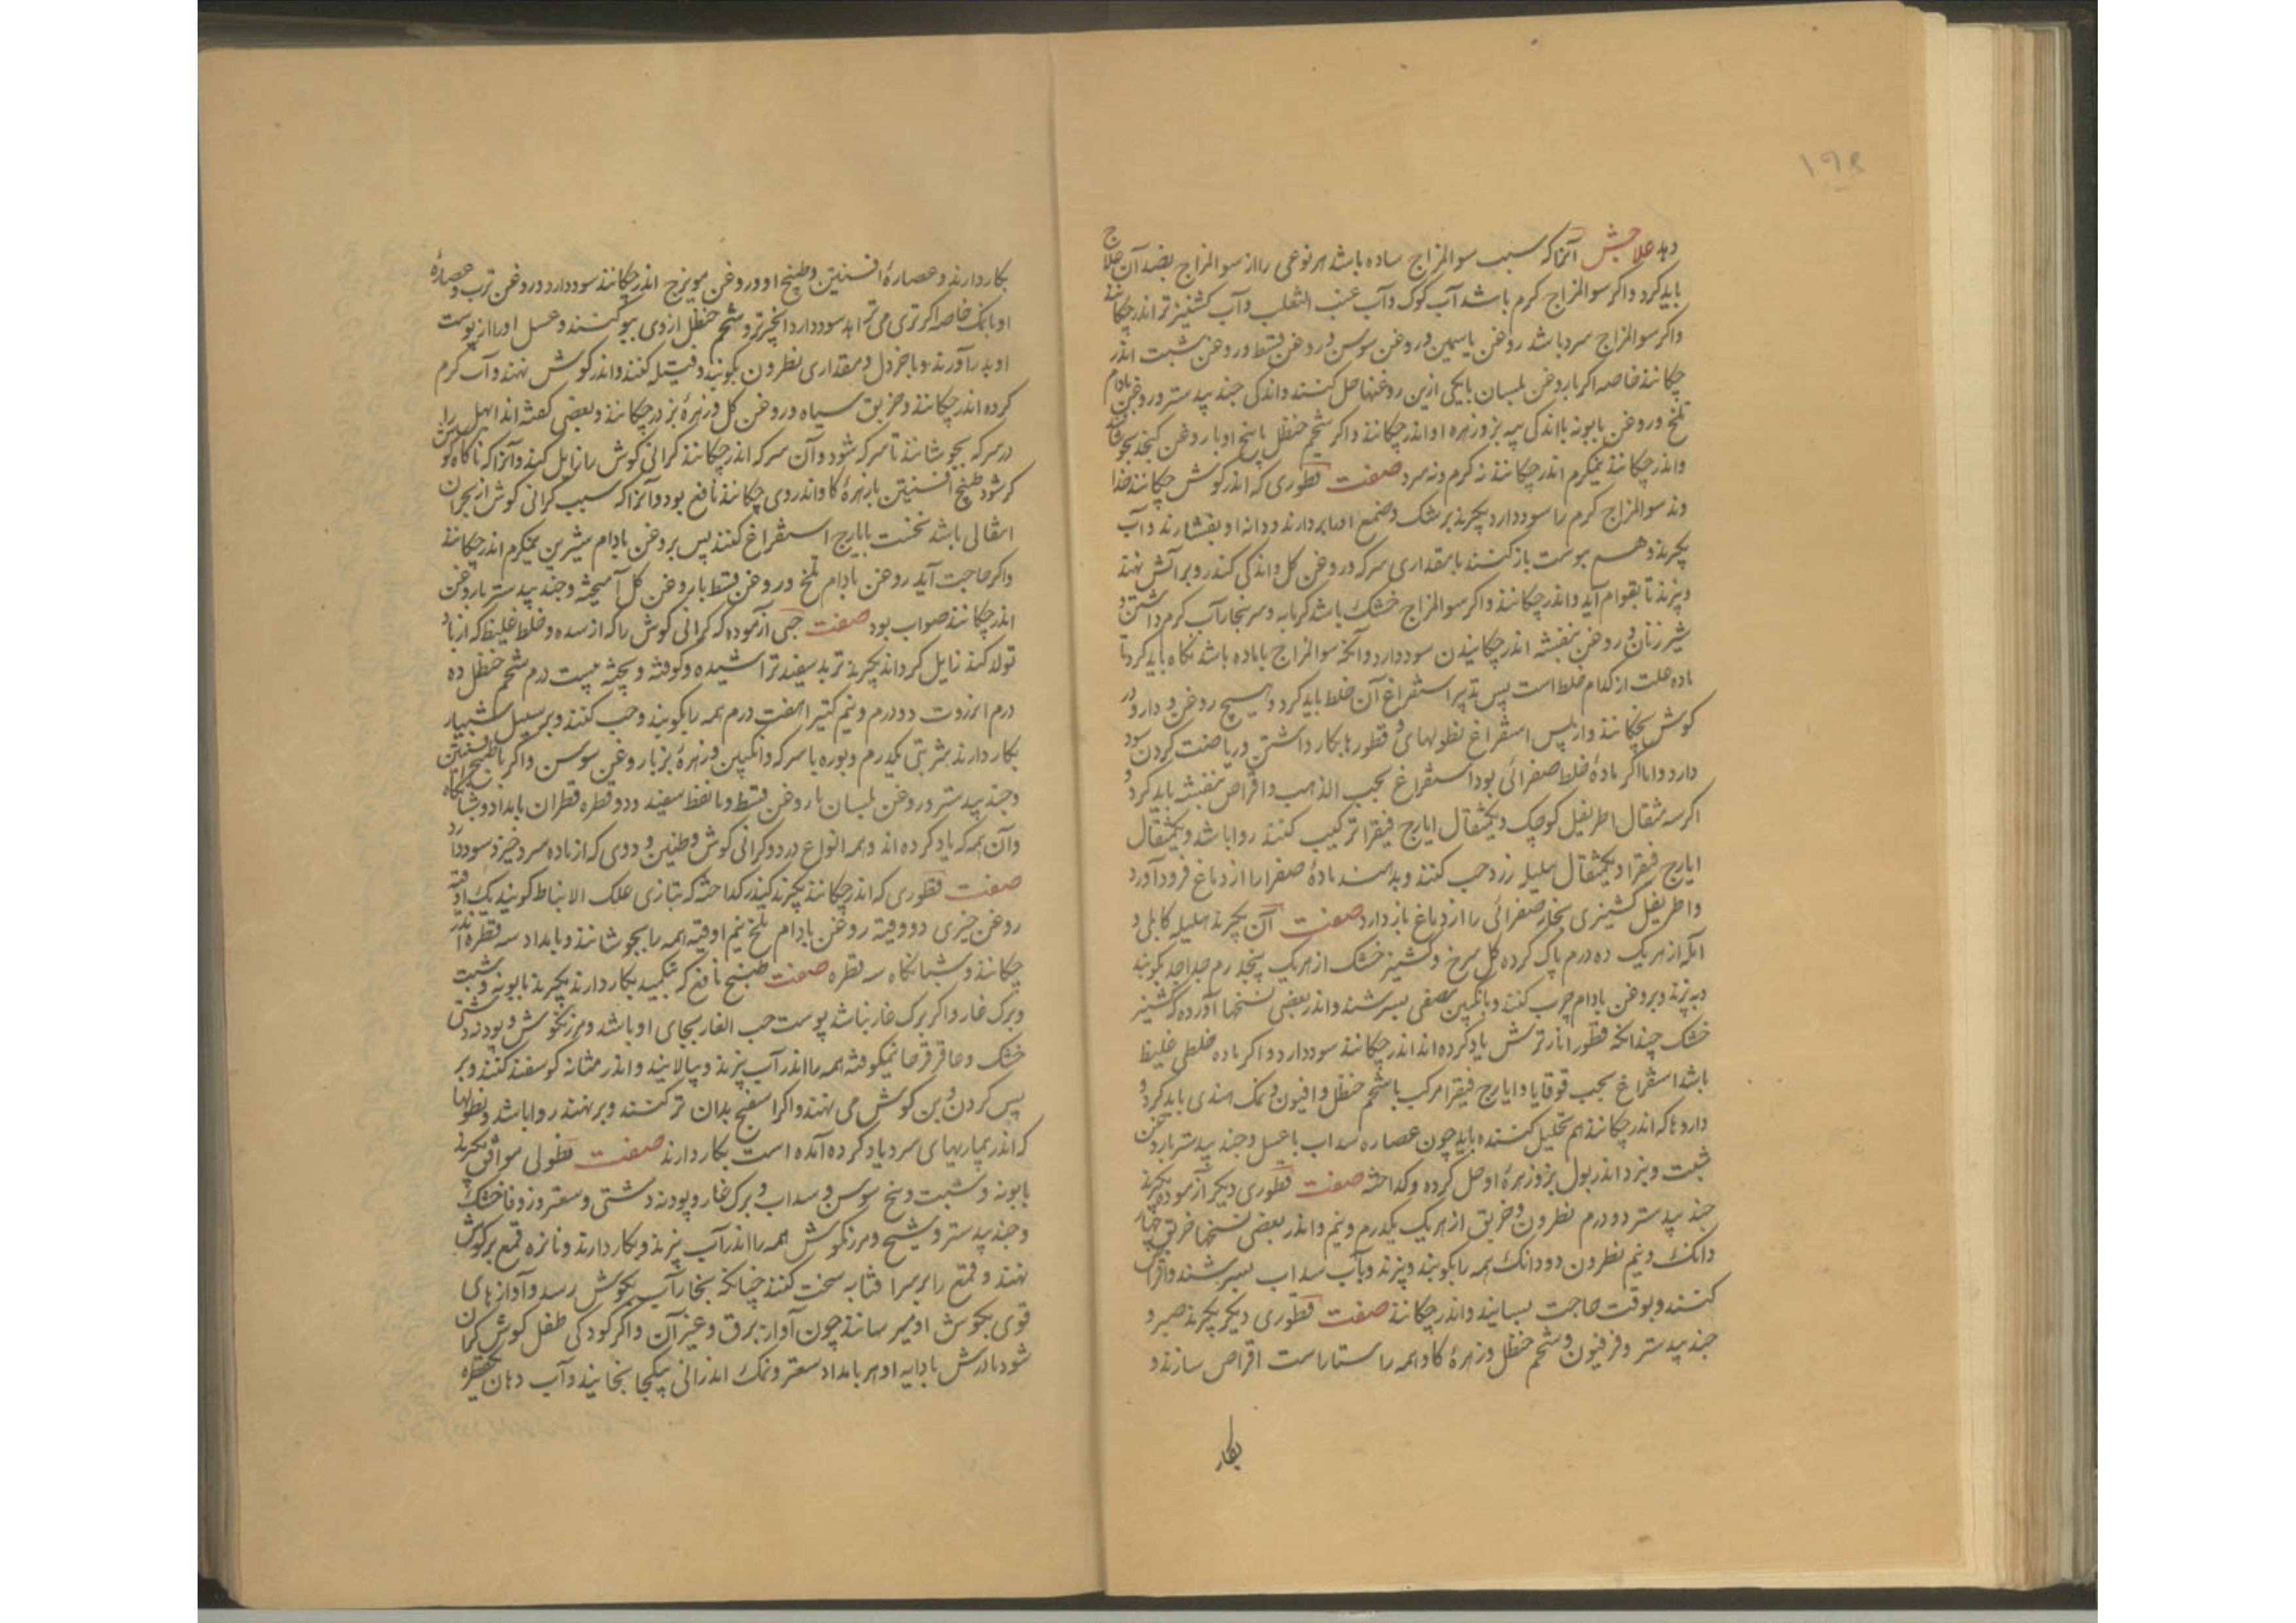 ۱۹۸
دهد علاجش آنرا که سبب سوالمزاج ساده باشد هر نوعی را از سوالمزاج بضد آن علاج
باید کرد واکر سوالمزاج کرم باشد آب کوک وآب عنب الثعلب وآب کشنیز تر اندر چکانند
واکر سوالمزاج سرد باشد روغن یاسمین وروغن سوسن وروغن قسط وروغن شبت اندر
چکانند خاصه اکر باروغن بلسان یا یکی ازین روغنها حل کنند واندکی جندبیدستر وروغن بادام
تلخ وروغن بابونه با اندکی پیه بز وزهره او اندر چکانند واکر شحم حنظل یا بیخ او با روغن کنجد بجوشانند
واندر چکانند نیمکرم اندر چکانند نه کرم ونه سرد صفت قطوری که اندر کوش چکانند خداوند
سوالمزاج کرم را سود دارد بکیرند برشک وضمع اورا بردارند ودانه او بفشارند وآب
بکیرند وهم بپوست باز کنند با مقداری سرکه وروغن کل واندکی کندر وبر آتش نهند
وبپزند تا بقوام آید واندر چکانند واکر سوالمزاج خشک باشد کرمابه وسر ببخار آب کرم داشتن و
شیر زنان وروغن بنفشه اندر چکانیدن سود دارد وآنچه سوالمزاج با ماده باشد نکاه باید کرد تا
ماده علت از کدام خلط است پس تدبیر استفراغ آن خلط باید کرد وهیچ روغن ودارو در
کوش نچکانند واز پس استفراغ نطولهای و قطورها بکار داشتن وریاضت کردن سود
دارد واما اکر ماده خلط صفرائی بود استفراغ بحب الذهب واقراص بنفشه باید کرد و
اکر سه مثقال اطریفل کوچک ویکمثقال ایارج فیقرا ترکیب کنند روا باشد ویکمثقال
ایارج فیقرا ویکمثقال هلیله زرد حب کنند وبدهند ماده صفرا را از دماغ فرود آورد
واطریفل کشنیزی بخار صفرائی را از دماغ باز دارد صفت آن بکیرند هلیله کابلی و
آمله از هریک ده درم پاک کرده کل سرخ وکشنیز خشک از هریک پنجدرم جدا جدا بکوبند
وبپزند وبروغن بادام چرب کنند وبانکبین مصفی بسرشند واندر بعضی نسخها آورده که کشنیز
خشک چندانکه قطور انار ترش یاد کرده اند اندر چکانند سود دارد واکر ماده خلطی غلیظ
باشد استفراغ بحب قوقایا وایارج فیقرا مرکب با شحم حنظل وافیون ونمک هندی باید کرد و
داروها که اندر چکانند هم تحلیل کننده باید چون عصاره سداب با عسل وجندبیدستر باروغن
شبت وبزد اندر بول بز وزهره او حل کرده وکداخته صفت قطوری دیکر آزموده بکیرند
جندبیدستر دو درم نطرون وخربق از هریک یکدرم ونیم واندر بعضی نسخها خربق چهار
دانک ونیم نطرون دو دانک همه را بکوبند وبپزند وبآب سداب بسرشند واقراص
کنند وبوقت حاجت بسایند واندر چکانند صفت قطوری دیکر بکیرند صبر و
جندبیدستر وفرفیون وشحم حنظل وزهره کاو همه راستاراست اقراص سازند و
بکار
بکار دارند وعصاره افسنتین وطبیخ او وروغن مویزج اندر چکانند سود دارد وروغن ترب وعصاره
او با نمک خاصه اکر تری می ترابد سود دارد انجیر تر وشحم حنظل از وی بیو کنند وعسل اورا از پوست
او بدر آورند وبا خردل ومقداری نطرون بکوبند وفتیله کنند واندر کوش نهند وآب کرم
کرده اندر چکانند وخربق سیاه وروغن کل وزهره بز در چکانند وبعضی کفته اند ابهل را
در سرکه بجوشانند تا سرکه شود وآن سرکه اندر چکانند کرانی کوش را زایل کند وآنرا که ناکاه کوش
کر شود طبیخ افسنتین با زهره کاو اندر وی چکانند نافع بود وآنرا که سبب کرانی کوش از بحران
انتقالی باشد نخست بایارج استفراغ کنند پس بروغن بادام شیرین نیمکرم اندر چکانند
واکر حاجت آید روغن بادام تلخ وروغن قسط با روغن کل آمیخته وجندبیدستر با روغن
اندر چکانند صواب بود صفت حبی آزموده که کرانی کوش را که از سده وخلط غلیظ که از باد
تولد کند زایل کرداند بکیرند تربد سفید تراشیده وکوفته وپخته بیست درم شحم حنظل ده
درم انزروت دو درم ونیم کتیرا هفت درم همه را بکوبند وحب کنند وبر سبیل شبیار
بکار دارند شربتی یکدرم وبوره با سرکه وانکبین وزهره بز با روغن سوسن واکر با طبیخ افسنتین
وجندبیدستر وروغن بلسان با روغن قسط وبا نفط سفید ودو قطره قطران بامداد وشبانکاه
وآن همه که یاد کرده اند وهمه انواع درد وکرانی کوش وطنین ودوی که از ماده سرد خیزد سود دارد
صفت قطوری که اندر چکانند بکیرند کندر کداخته که بتازی علک الانباط کویند یک اوقیه
روغن خیری دو وقیه روغن بادام تلخ نیم اوقیه همه را بجوشانند وبامداد سه قطره اندر
چکانند وشبانکاه سه قطره صفت طبیخ نافع که تکمید بکار دارند بکیرند بابونه وشبت
وبرک غار واکر برک غار نباشد پوست حب الغار بجای او باشد ومرزنکوش وپودنه دشتی
خشک وعاقرقرحا نیمکوفته همه را اندر آب بپزند وبپالایند واندر مثانه کوسفند کنند وبر
پس کردن وبن کوش می نهند واکر اسفنج بدان تر کنند وبر نهند روا باشد ونطولها
که اندر بیماریهای سرد یاد کرده آمده است بکار دارند صفت نطولی موافق بکیرند
بابونه وشبت وبیخ سوسن وسداب وبرک غار وپودنه دشتی وسعتر وزوفا خشک
وجندبیدستر وشیح ومرزنکوش همه را اندر آب بپزند وبکار دارند ونایزه قمع بر کوش
نهند وقمع را بر سر افتابه سخت کنند چنانکه بخار آب بکوش رسد وآوازهای
قوی بکوش او میرسانند چون آواز برق وغیر آن واکر کودکی طفل کوش کران
شود مادرش یا دایه او هر بامداد سعتر ونمک اندرانی بیکجا بخایند وآب دهان یکقطره